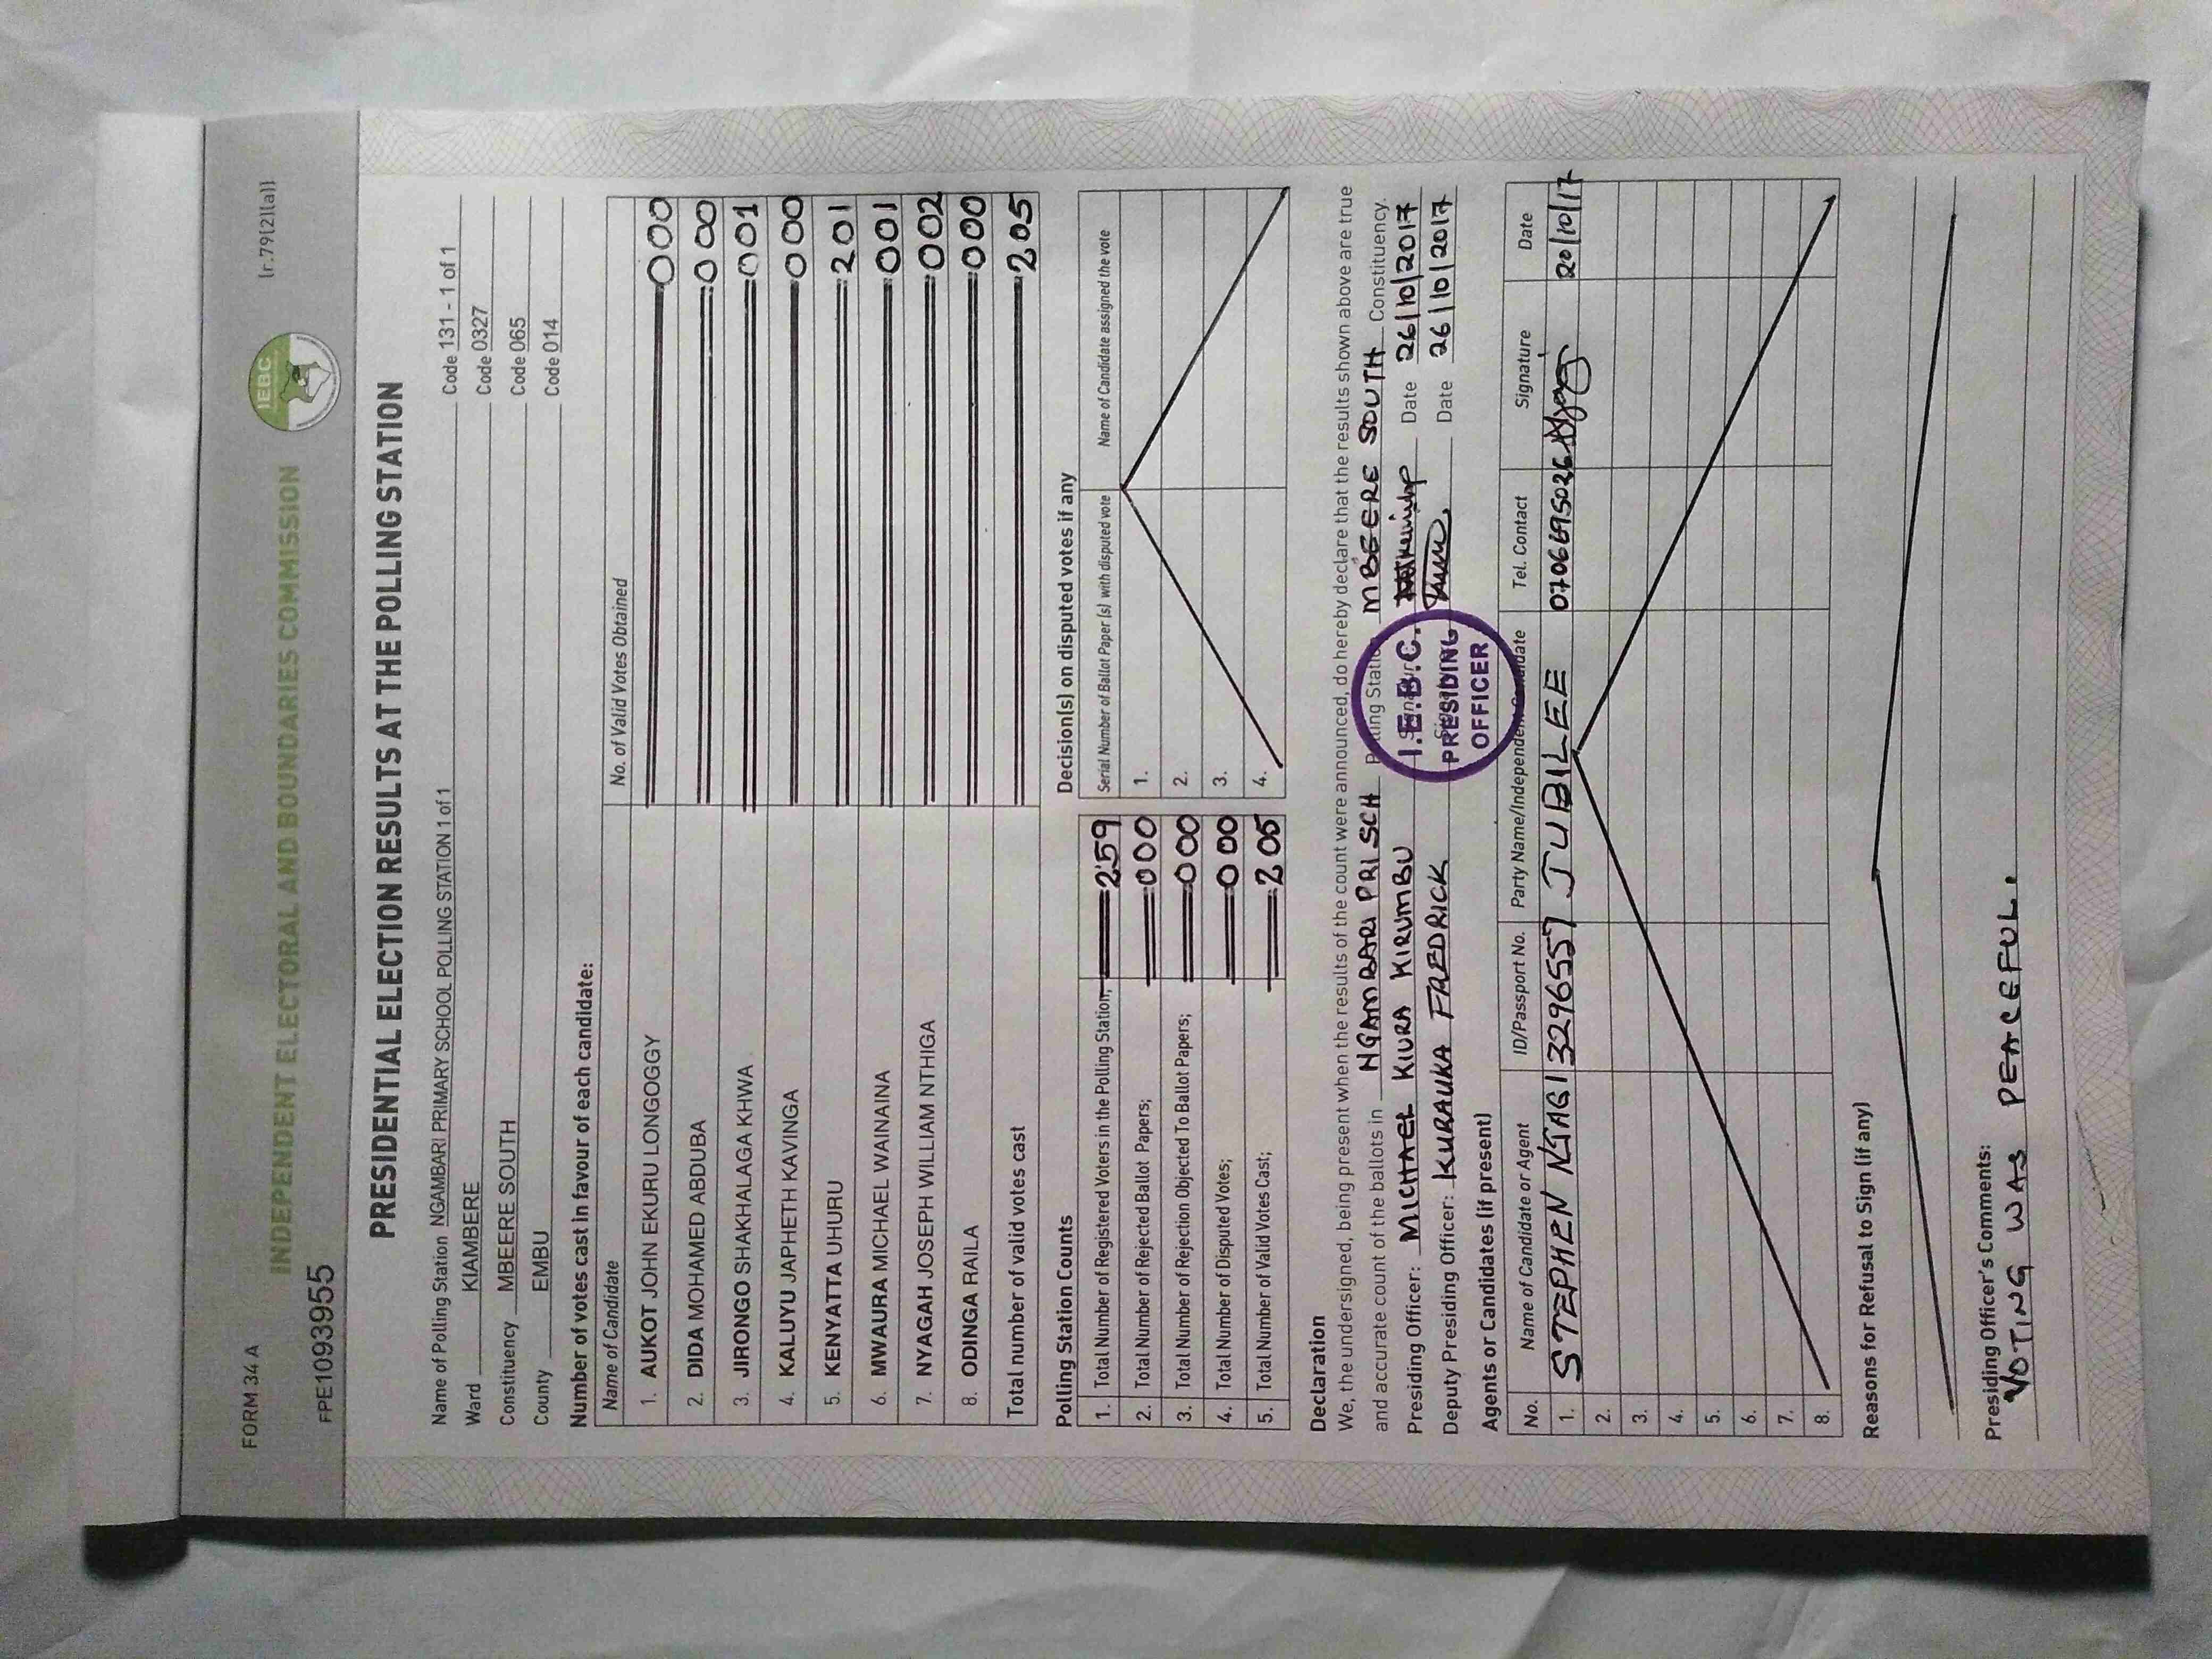 FORM 34 A
(r.79(2)(a))
IEBC
INDEPENDENT ELECTORAL AND BOUNDARIES COMMISSION
FPE1093955
PRESIDENTIAL ELECTION RESULTS AT THE POLLING STATION
Name of Polling Station NGAMBARI PRIMARY SCHOOL POLLING STATION 1 of 1 Code 131 - 1 of 1
Ward KIAMBERE Code 0327
Constituency MBEERE SOUTH Code 065
County EMBU Code 014
Number of votes cast in favour of each candidate:
Name of Candidate No. of Valid Votes Obtained
1. AUKOT JOHN EKURU LONGOGGY 000
2. DIDA MOHAMED ABDUBA 000
3. JIRONGO SHAKHALAGA KHWA 001
4. KALUYU JAPHETH KAVINGA 000
5. KENYATTA UHURU 201
6. MWAURA MICHAEL WAINAINA 001
7. NYAGAH JOSEPH WILLIAM NTHIGA 002
8. ODINGA RAILA 000
Total number of valid votes cast 205
Polling Station Counts
1. Total Number of Registered Voters in the Polling Station; 259
2. Total Number of Rejected Ballot Papers; 000
3. Total Number of Rejection Objected To Ballot Papers; 000
4. Total Number of Disputed Votes; 000
5. Total Number of Valid Votes Cast; 205
Decision(s) on disputed votes if any
Serial Number of Ballot Paper (s) with disputed vote Name of Candidate assigned the vote
1.
2.
3.
4.
Declaration
We, the undersigned, being present when the results of the count were announced, do hereby declare that the results shown above are true
and accurate count of the ballots in NGAMBARI PRI SCH Polling Station MBEERE SOUTH Constituency.
Presiding Officer: MICHAEL KIURA KIRUMBU Signature Date 26/10/2017
Deputy Presiding Officer: KURAUKA FREDRICK Date 26/10/2017
I.E.B.C.
PRESIDING
OFFICER
Agents or Candidates (if present)
No. Name of Candidate or Agent ID/Passport No. Party Name/Independent Candidate Tel. Contact Signature Date
1. STEPHEN NJAGI 3296557 JUBILEE 0706695026 20/10/17
2.
3.
4.
5.
6.
7.
8.
Reasons for Refusal to Sign (if any)
Presiding Officer's Comments:
VOTING WAS PEACEFUL.